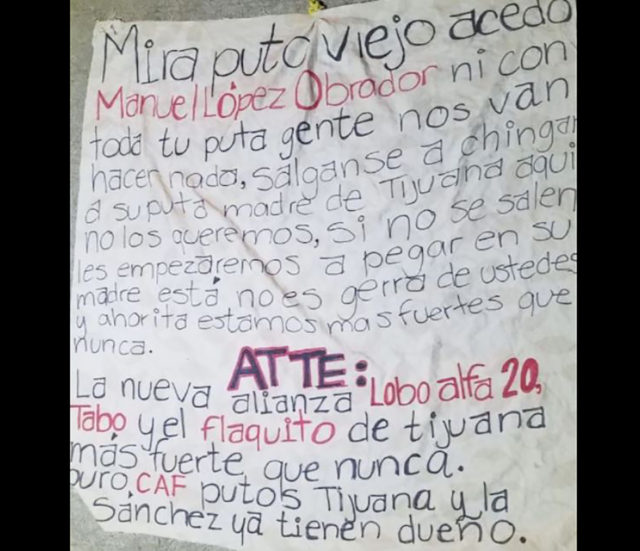 Mira puto viejo acedo
Manuel López Obrador ni con
toda tu puta gente nos van
hacer nada, salganse a chingar
a su puta madre de Tijuana aqui
no los queremos, si no se salen
les empezaremos a pegar en su
madre está no es gerra de ustedes
y ahorita estamos mas fuertes que
nunca.
ATTE:
La nueva alianza Lobo alfa 20,
Tabo y el flaquito de tijuana
más fuerte que nunca.
puro CAF putos Tijuana y la
Sánchez ya tienen dueño.